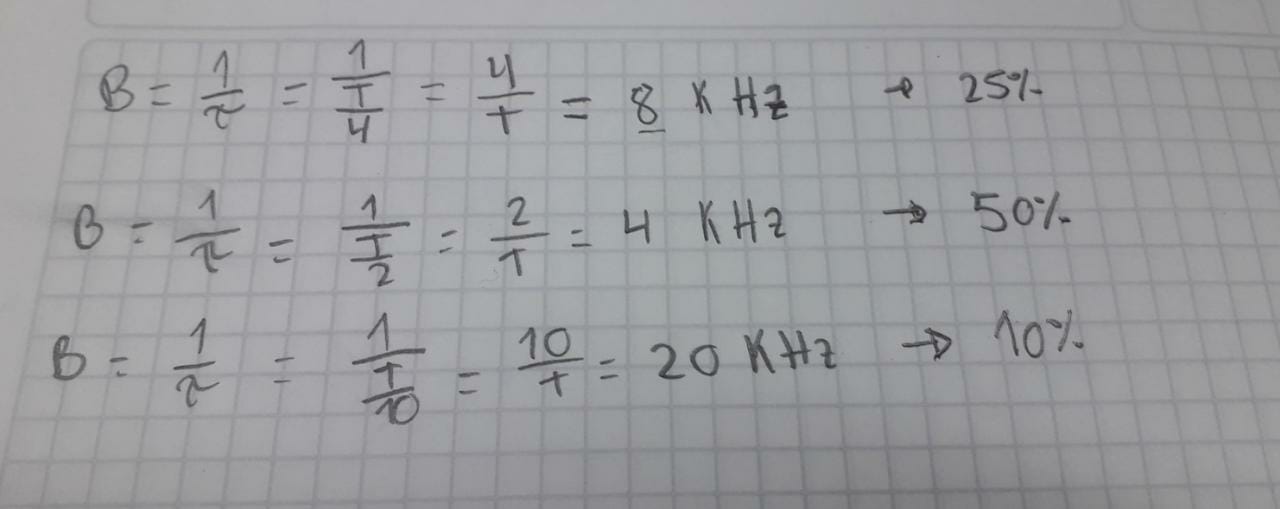 B = 1/τ = 1/(T/4) = 4/T = 8 KHz → 25%
B = 1/τ = 1/(T/2) = 2/T = 4 KHz → 50%
B = 1/τ = 1/(T/10) = 10/T = 20 KHz → 10%